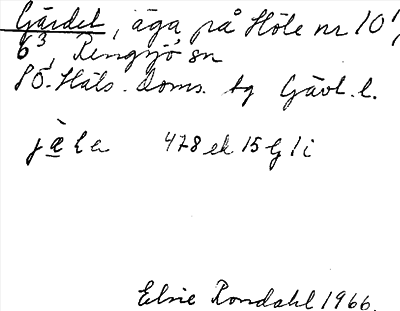 Gärdet, äga på Höle nr 10¹,
6³, Rengsjö sn
SÖ. Häls. doms. tg Gävl. l.
478 ek 15 G 1 i
Elsie Rondahl 1966.